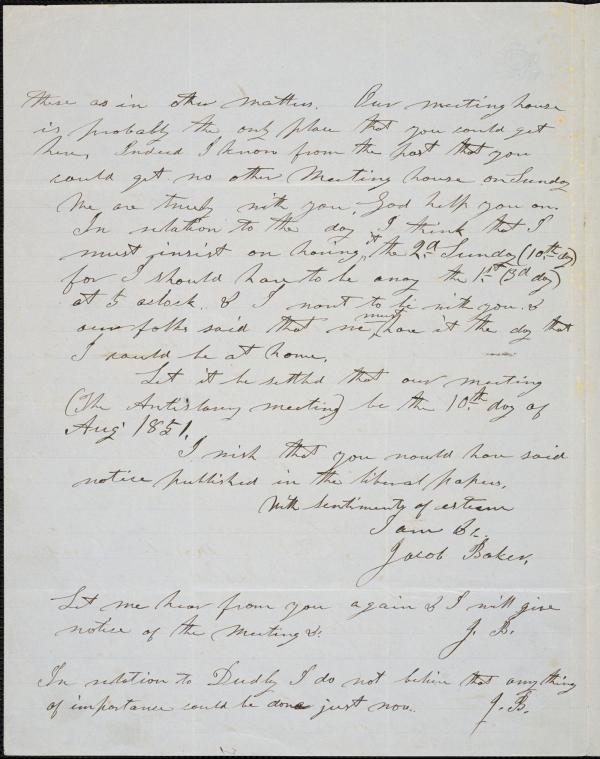 these as in other matters. Our meeting house
is probably the only place that you could get
here, Indeed I know from the past that you
could get no other Meeting house on Sunday
We are truly with you, God help you on.
In relation to the day I think that I
must insist on having it the 2d. Sunday (10th day)
for I should have to be away the 1.st (3d day)
at 5 oclock. & I want to be with you. &
our folks said that we must have it the day that
I could be at home.
Let it be settled that our meeting
(The Antislavery meeting) be the 10th. day of
Aug 1851.
I wish that you would have said
notice published in the liberal papers,
With sentiments of esteem
I am &c.
Jacob Baker,
Let me hear from you again & I will give
notice of the meeting &.
J. B.
In relation to Dudly I do not believe that any thing
of importance could be done just now.
J. B.